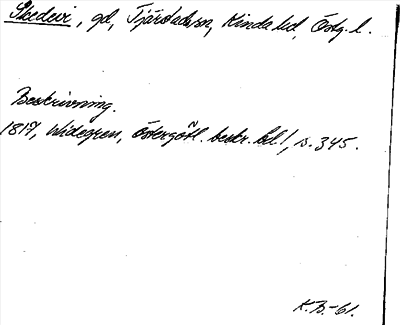 Skedevi, gd, Tjärstads sn, Kinda hd, Östg. l.
Beskrivning.
1817, Widegren, Östergötl. beskr. bd 1, s. 345.
K.B.-61.